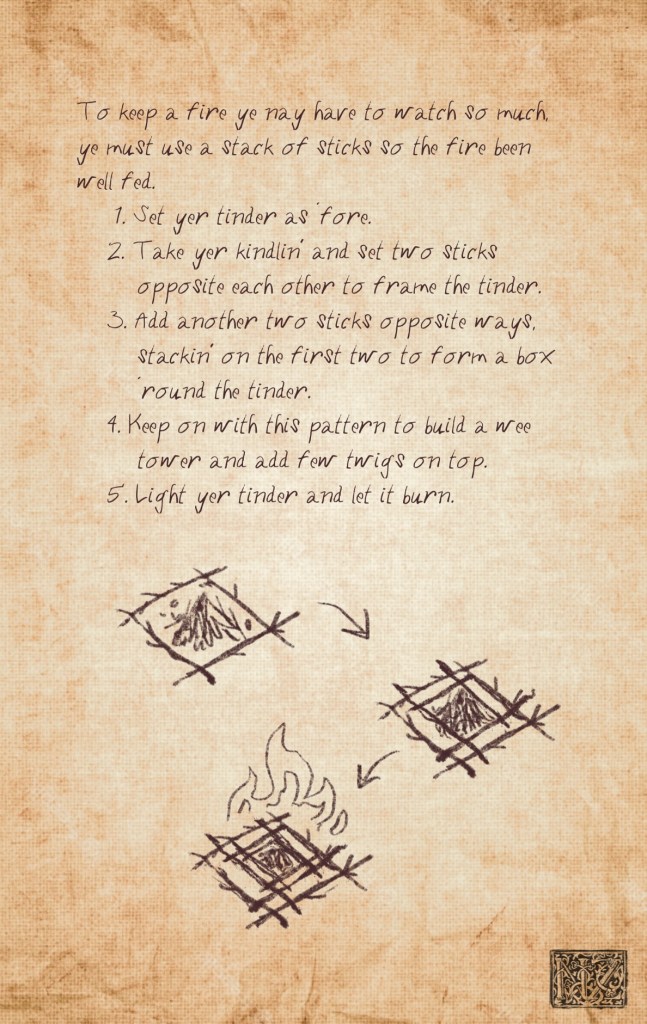 To keep a fire ye nay have to watch so much,
ye must use a stack of sticks so the fire been
well fed.
1. Set yer tinder as 'fore.
2. Take yer kindlin' and set two sticks
opposite each other to frame the tinder.
3. Add another two sticks opposite ways,
stackin' on the first two to form a box
'round the tinder.
4. Keep on with this pattern to build a wee
tower and add few twigs on top.
5. Light yer tinder and let it burn.